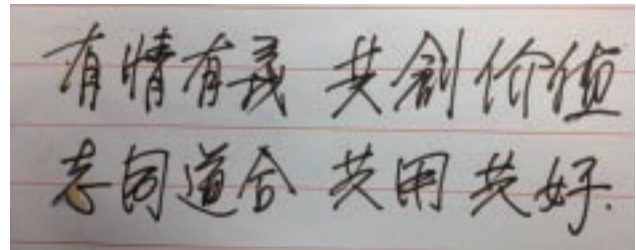 有情有義 共創价值
志同道合 共用共好.